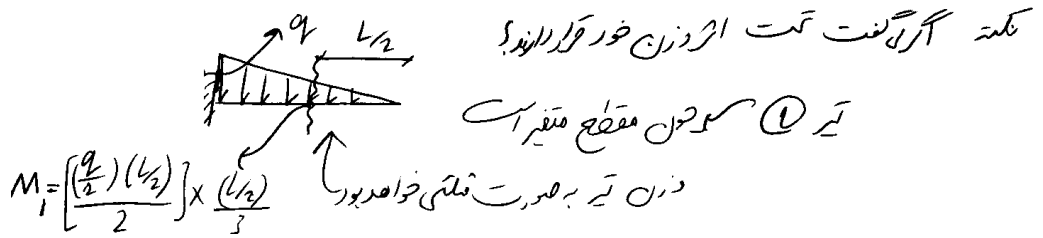 نکته اگر می‌گفت تحت اثر وزن خود قرار دارند؟
q
L/2
تیر ① چون مقطع متغیر است
وزن تیر به صورت مثلثی خواهد بود
M₁ = [(q/2)(L/2)/2] × (L/2)/3